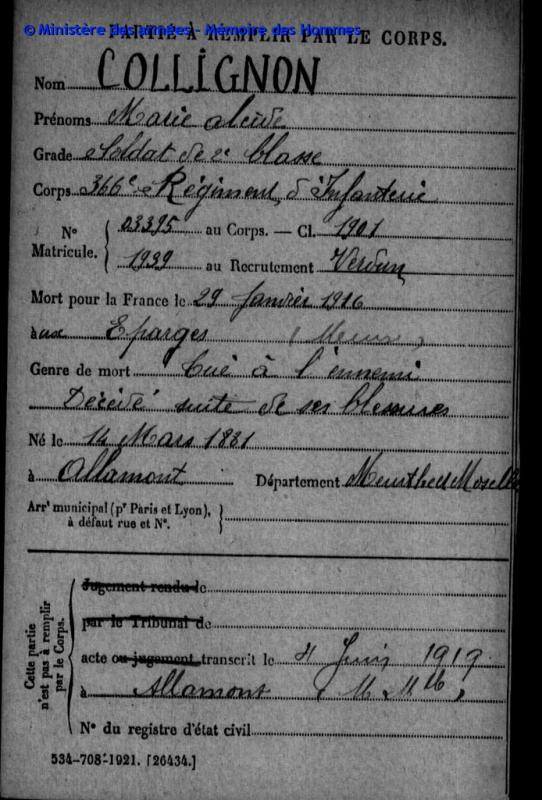 © Ministère des armées - Mémoire des Hommes
PARTIE À REMPLIR PAR LE CORPS.
Nom COLLIGNON
Prénoms Marie alcide
Grade Soldat de 2e Classe
Corps 366e Régiment d'Infanterie
N° Matricule. { 03395 au Corps. — Cl. 1901
1939 au Recrutement Verdun
Mort pour la France le 29 Janvier 1916
à aux Eparges (Meuse)
Genre de mort Tué à l'ennemi
Décédé suite de ses blessures
Né le 14 Mars 1881
à Allamont Département Meurthe et Moselle
Arrt municipal (pr Paris et Lyon), à défaut rue et N°. }
Cette partie n'est pas à remplir par le Corps. {
Jugement rendu le
par le Tribunal de
acte ou jugement transcrit le 4 Juin 1919
à Allamont (M. Mlle)
N° du registre d'état civil
534-708-1921. [26434.]